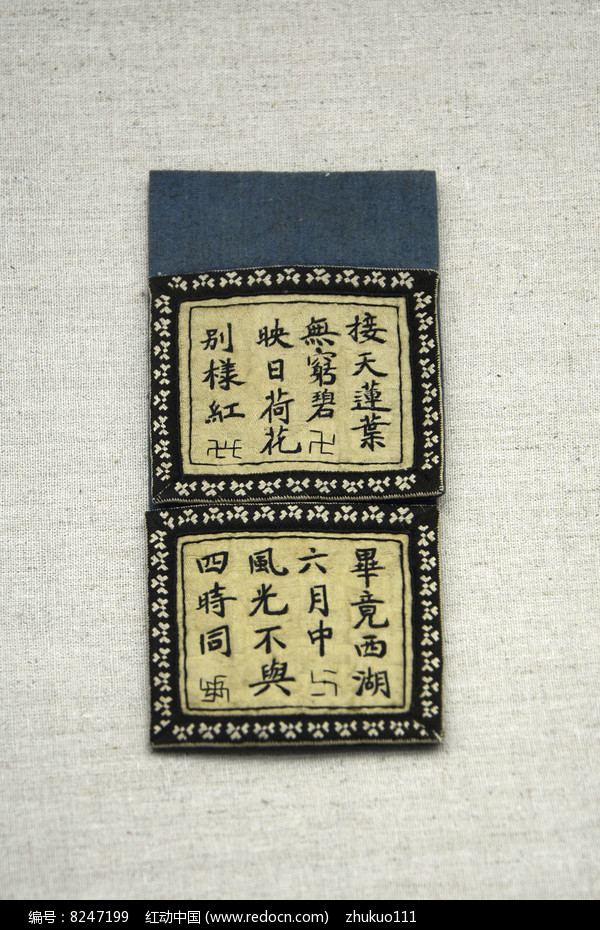 接天蓮葉
無窮碧
映日荷花
別樣紅
畢竟西湖
六月中
風光不與
四時同
编号：8247199 红动中国 (www.redocn.com) zhukuo111